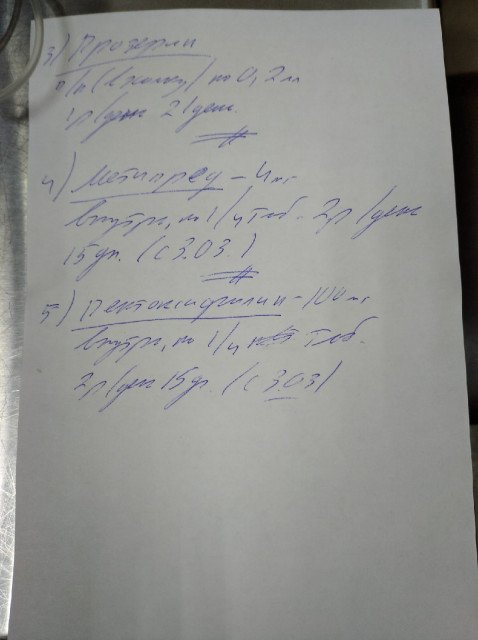 3) Прозерин
п/к (в холку) по 0,2 мл
1 р/день 21 день.
4) Метипред - 4 мг
внутрь, по 1/4 таб. 2 р/день
15 дн. (с 3.03.)
5) Пентоксифиллин - 100 мг
внутрь, по 1/4 таб.
2 р/день 15 дн. (с 3.03)